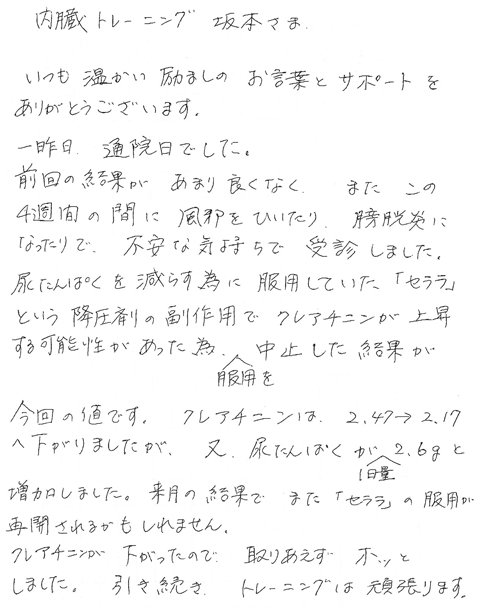 内臓トレーニング 坂本さま.
いつも 温かい 励ましの お言葉と サポートを
ありがとうございます。
一昨日. 通院日でした。
前回の結果が あまり良くなく. また この
4週間の間に 風邪をひいたり. 膀胱炎に
なったりで. 不安な気持ちで 受診しました。
尿たんぱくを減らす為に 服用していた「セララ」
という 降圧剤の副作用で クレアチニンが上昇
する可能性があった為. 中止した結果が
服用を
今回の値です。 クレアチニンは. 2.47→2.17
へ下がりましたが. 又. 尿たんぱくが 2.6gと
1日量
増加しました。来月の結果で また「セララ」の服用が
再開されるかもしれません。
クレアチニンが 下がったので. 取りあえず ホッと
しました。 引き続き. トレーニングは 頑張ります。